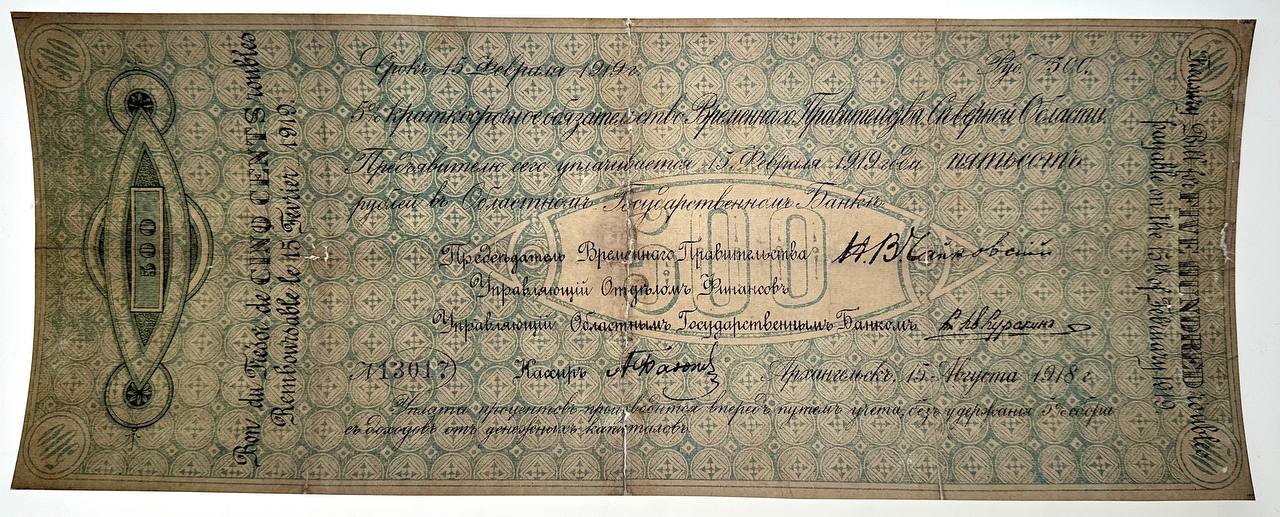 Срокъ 15 Февраля 1919 г.
Руб. 500.
5% краткосрочное обязательство Временнаго Правительства Северной Области.
Предъявателю сего уплачивается 15 Февраля 1919 года пятьсотъ
рублей въ Областномъ Государственномъ Банкѣ
500
Председатель Временнаго Правительства Н. В. Чайковскій
Управляющій Отделомъ Финансовъ
Управляющій Областнымъ Государственнымъ Банкомъ
№ 13017
Кассиръ
Архангельскъ, 15 Августа 1918 г.
Уплата процентовъ производится впередъ путемъ учета, безъ удержания 5% сбора
съ доходовъ отъ денежныхъ капиталовъ.
500
Bon du Tresor de CINQ CENTS roubles
Remboursable le 15 Fevrier 1919
Treasury Bill for FIVE HUNDRED roubles
payable on the 15th of February 1919